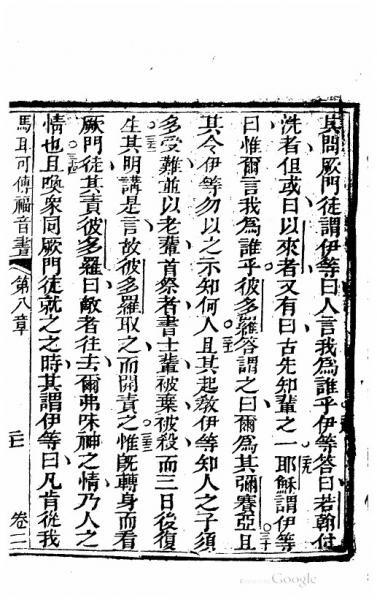 其問厥門徒謂伊等曰人言我爲誰乎伊等答曰若翰付
洗者但或曰以來者又有曰古先知輩之一耶穌謂伊等
曰惟爾言我爲誰乎彼多羅答謂之曰爾爲其彌賽亞且
其令伊等勿以之示知何人且其起教伊等知人之子須
多受難並以老輩首祭者書士輩被棄被殺而三日後復
生其明講是言故彼多羅取之而開責之惟旣轉身而看
厥門徒其責彼多羅曰敵者往去爾弗味神之情乃人之
情也且喚衆同厥門徒就之之時其謂伊等曰凡肯從我
馬耳可傳福音書 第八章 卷二
Google